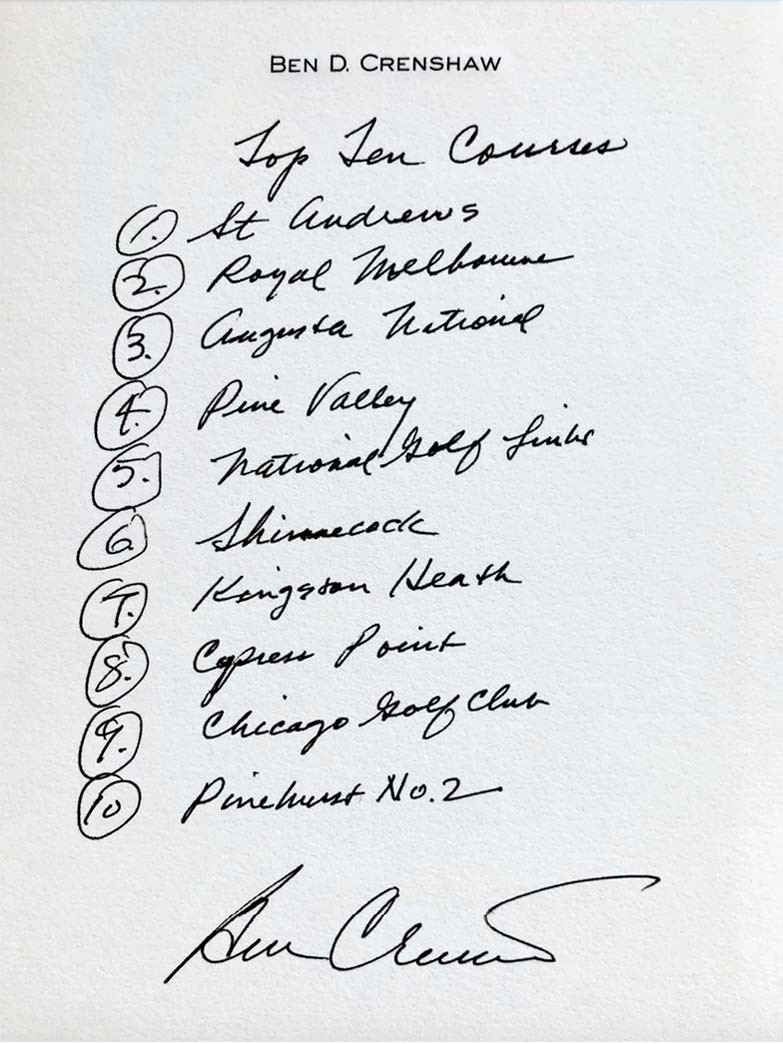 BEN D. CRENSHAW
Top Ten Courses
1. St Andrews
2. Royal Melbourne
3. Augusta National
4. Pine Valley
5. National Golf Links
6 Shinnecock
7. Kingston Heath
8. Cypress Point
9. Chicago Golf Club
10 Pinehurst No. 2
Ben Crenshaw